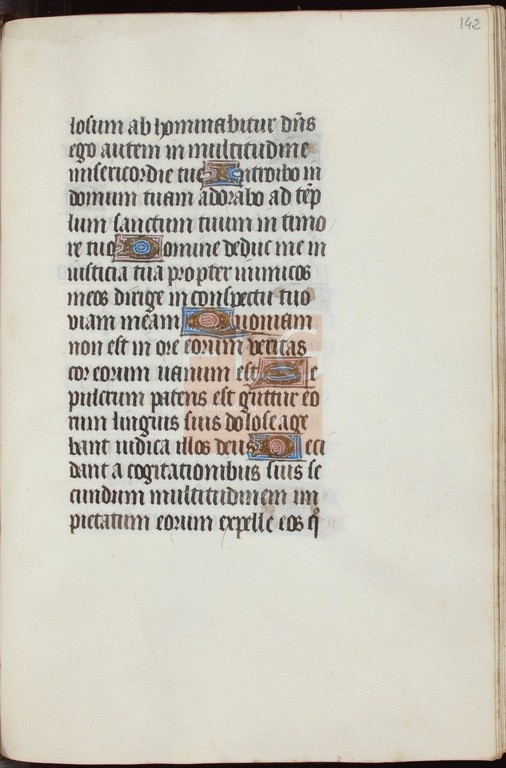 142
losum ab hominabitur dn̄s
ego autem in multitudine
misericordie tue Introibo in
domum tuam adorabo ad tēp
lum sanctum tuum in timo
re tuo Domine deduc me in
iusticia tua propter inimicos
meos dirige in conspectu tuo
viam meam Quoniam
non est in ore eorum veritas
cor eorum uanum est Se
pulcrum patens est guttur eo
rum linguis suis dolose age
bant iudica illos deus Deci
dant a cogitationibus suis se
cundum multitudinem im
pietatum eorum expelle eos qͦ